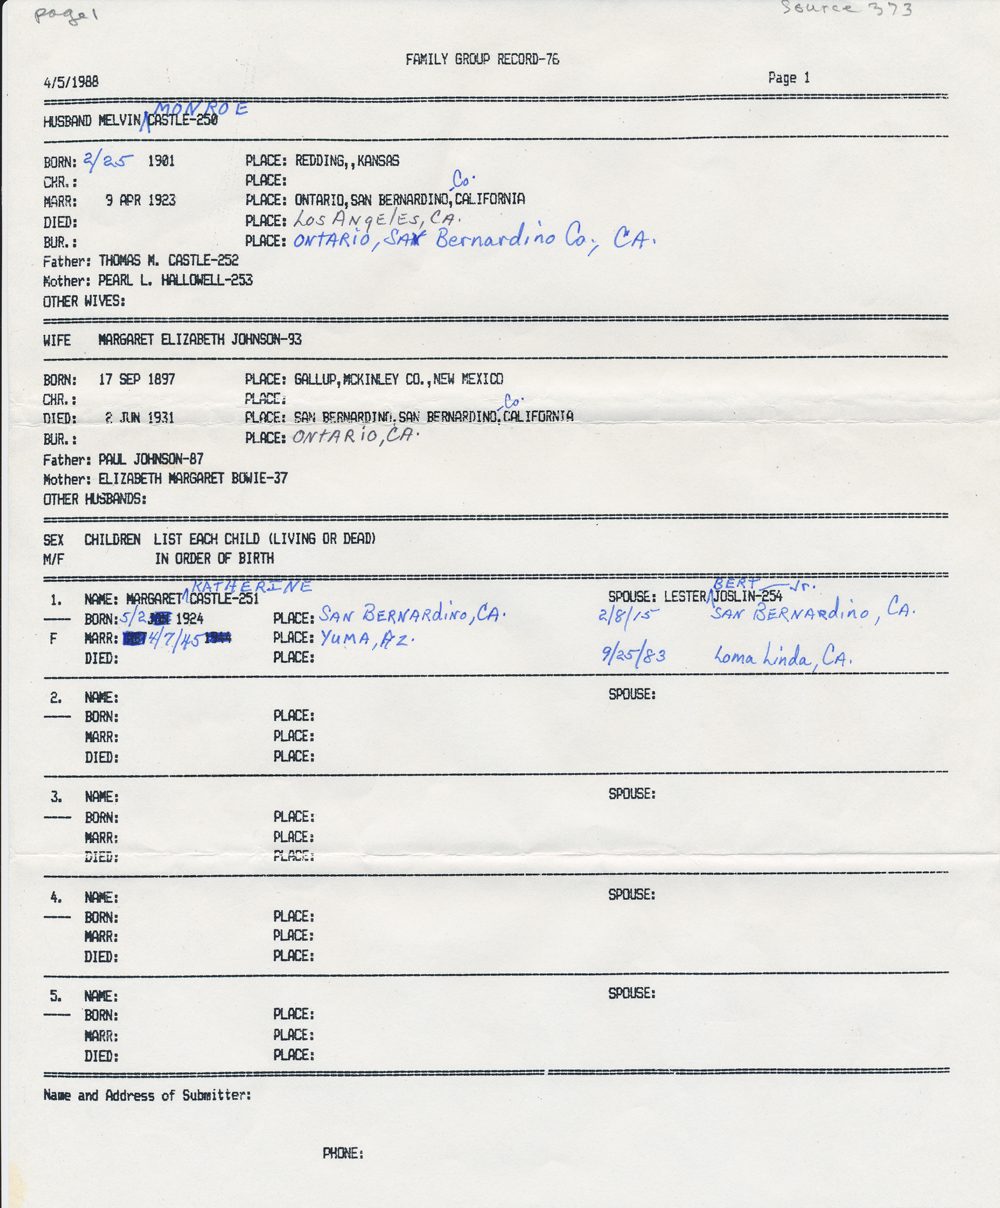 page 1
Source 373
FAMILY GROUP RECORD-76
4/5/1988
Page 1
MONROE
HUSBAND MELVIN CASTLE-250
BORN: 2/25 1901 PLACE: REDDING,,KANSAS
CHR.: PLACE:
Co.
MARR: 9 APR 1923 PLACE: ONTARIO,SAN BERNARDINO,CALIFORNIA
DIED: PLACE: Los Angeles, CA.
BUR.: PLACE: ONTARIO, SAN Bernardino Co., CA.
Father: THOMAS M. CASTLE-252
Mother: PEARL L. HALLOWELL-253
OTHER WIVES:
WIFE MARGARET ELIZABETH JOHNSON-93
BORN: 17 SEP 1897 PLACE: GALLUP,MCKINLEY CO.,NEW MEXICO
CHR.: PLACE:
Co.
DIED: 2 JUN 1931 PLACE: SAN BERNARDINO,SAN BERNARDINO,CALIFORNIA
BUR.: PLACE: ONTARIO, CA.
Father: PAUL JOHNSON-87
Mother: ELIZABETH MARGARET BOWIE-37
OTHER HUSBANDS:
SEX CHILDREN LIST EACH CHILD (LIVING OR DEAD)
M/F IN ORDER OF BIRTH
KATHERINE BERT Jr.
1. NAME: MARGARET CASTLE-251 SPOUSE: LESTER JOSLIN-254
BORN: 5/2 1924 PLACE: SAN BERNARDINO, CA. 2/8/15 SAN BERNARDINO, CA.
F MARR: 4/7/45 PLACE: YUMA, AZ. 
DIED: PLACE: 9/25/83 Loma Linda, CA.
2. NAME: SPOUSE:
BORN: PLACE:
MARR: PLACE:
DIED: PLACE:
3. NAME: SPOUSE:
BORN: PLACE:
MARR: PLACE:
DIED: PLACE:
4. NAME: SPOUSE:
BORN: PLACE:
MARR: PLACE:
DIED: PLACE:
5. NAME: SPOUSE:
BORN: PLACE:
MARR: PLACE:
DIED: PLACE:
Name and Address of Submitter:
PHONE: